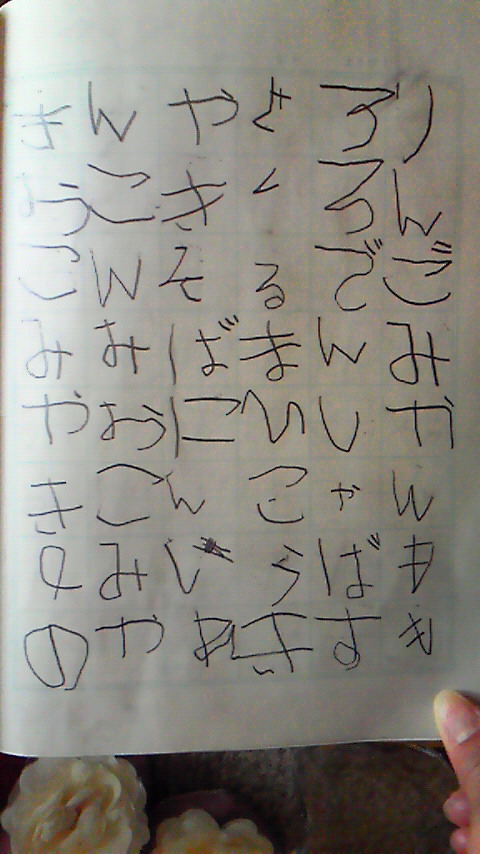 りんごみやんもも
ううでんしゃばす
とくるまひこうき
やきそばにんじ
んこんみおこみや
きおこみやきの